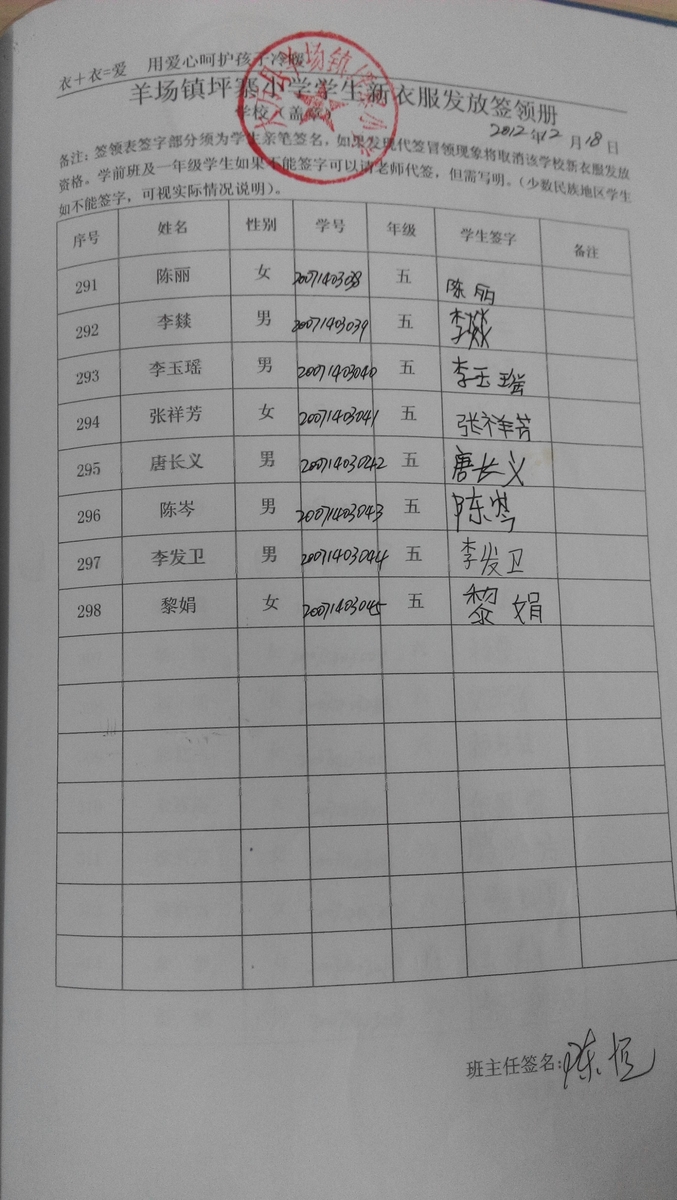 衣+衣=爱 用爱心呵护孩子冷暖
羊场镇坪寨小学学生新衣服发放签领册
学校（盖章）
2012年12月18日
备注：签领表签字部分须为学生亲笔签名，如果发现代签冒领现象将取消该学校新衣服发放
资格。学前班及一年级学生如果不能签字可以请老师代签，但需写明。（少数民族地区学生
如不能签字，可视实际情况说明）。
序号 姓名 性别 学号 年级 学生签字 备注
291 陈丽 女 2007140308 五 陈丽
292 李燚 男 20071403039 五 李燚
293 李玉瑶 男 20071403040 五 李玉瑶
294 张祥芳 女 20071403041 五 张祥芳
295 唐长义 男 20071403042 五 唐长义
296 陈岑 男 20071403043 五 陈岑
297 李发卫 男 20071403044 五 李发卫
298 黎娟 女 20071403045 五 黎娟
班主任签名：陈恒